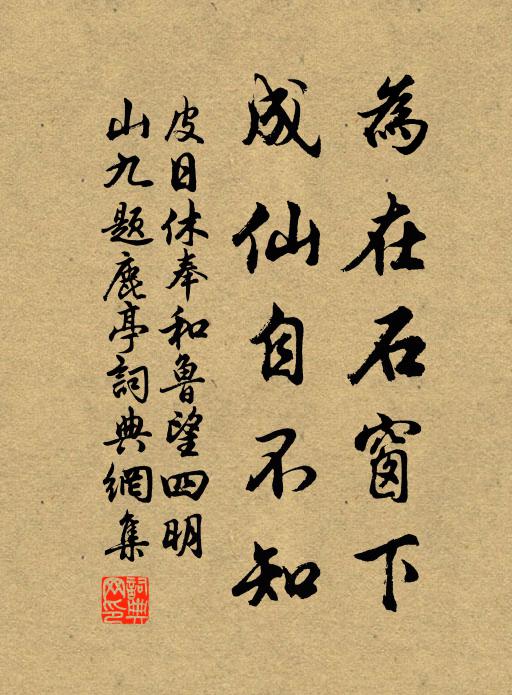 為在石窗下
成仙自不知
皮日休奉和魯望四明
山九題鹿亭詞典網集
詞典
网印